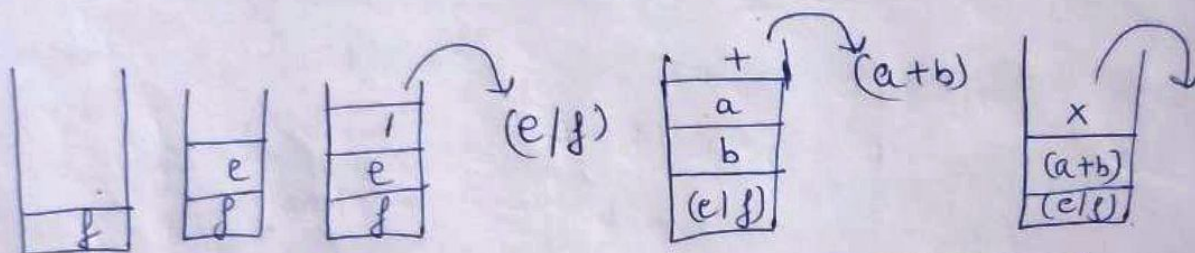 f
e
f
/
e
f
(e/f)
+
a
b
(e/f)
(a+b)
x
(a+b)
(e/f)